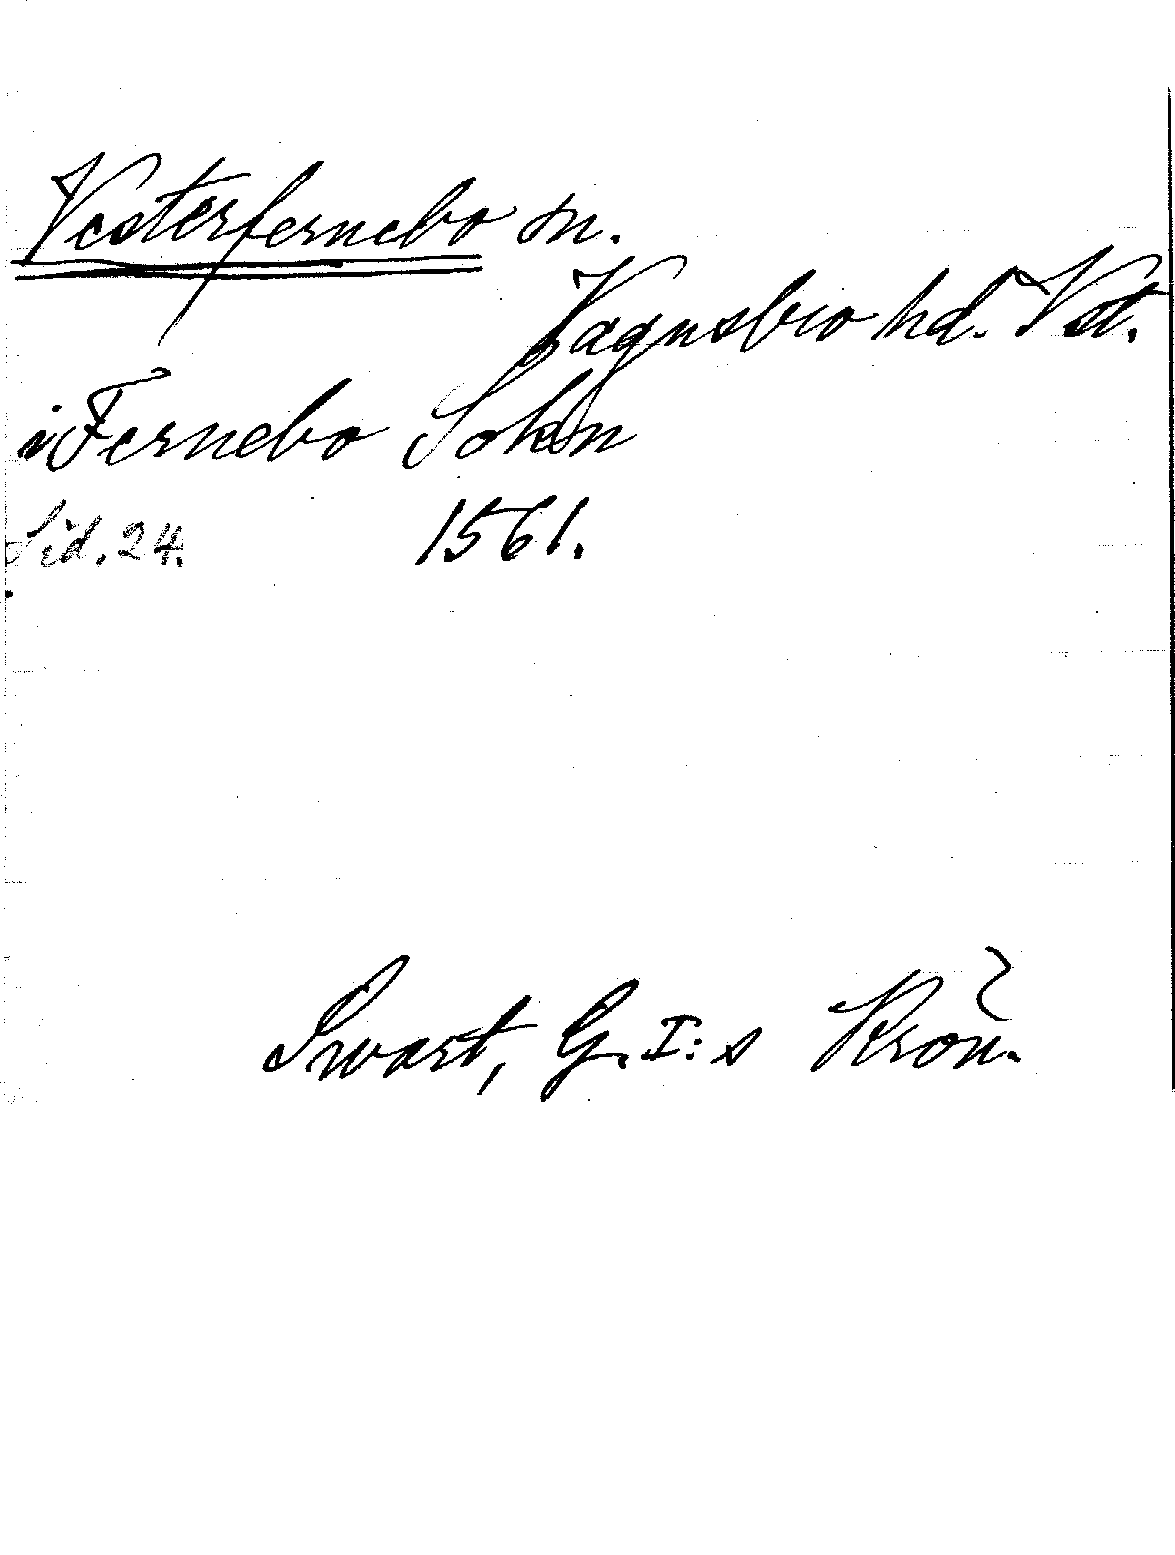 Vesterfernebo sn.
Vagnsbro hd. Vst.
i Fernebo Sokn
Sid. 24. 1561.
Swart, G. I:s Krön.